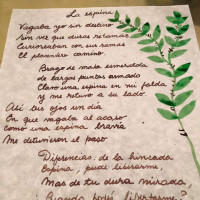 La espina
Vagaba yo sin destino
Sin ver que duras retamas
Curioseaban con sus ramas
El placentero camino.
Brazo de mata esmeralda
de largas puntas armado
Clavó una espina en mi falda
y me retuvo a su lado
Así tus ojos un día
En que vagaba al acaso
como una espina bravía
Me detuvieron el paso
Diferencias: de la hincada
Espina, pude librarme,
Mas de tu dura mirada,
Cuándo podré libertarme?